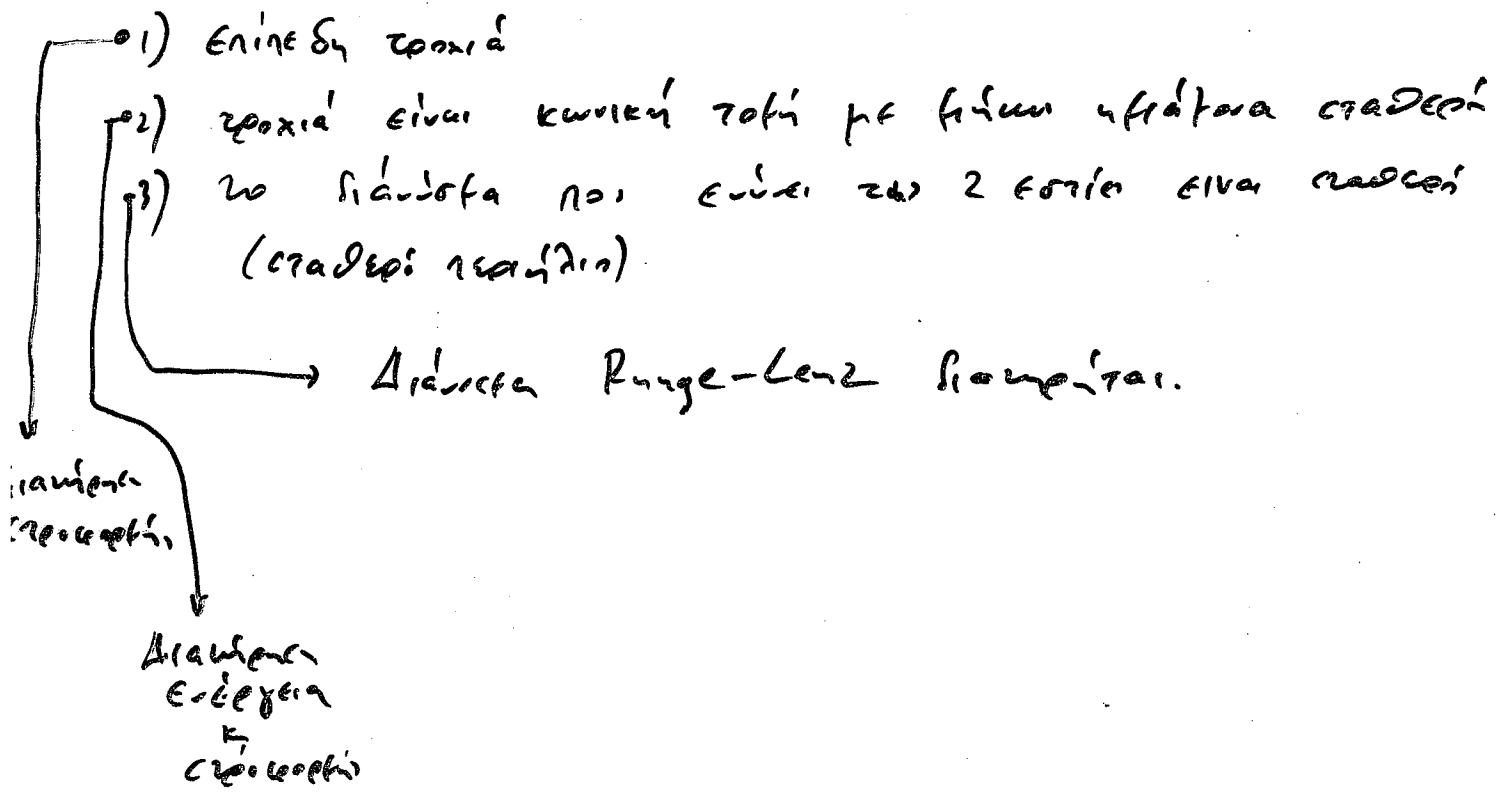 1) Επίπεδη τροχιά
2) τροχιά είναι κωνική τομή με μήκη ημιάξονα σταθερή
3) το διάνυσμα που ενώνει τις 2 εστίες είναι σταθερό
(σταθερό περιήλιο)
Διάνυσμα Runge-Lenz διατηρείται.
ιατήρηση
στροφορμής
Διατήρηση
ενέργεια
κ
στροφορμής